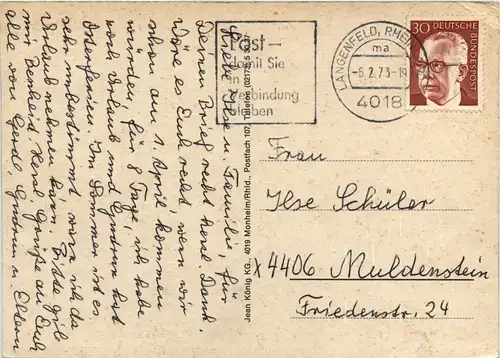 Liebe Ilse u. Familie, für
Deinen Brief recht herzl. Dank.
Wäre es Euch recht, wenn wir
schon am 1. April kommen
würden, für 8 Tage, ich habe
Urlaub und Gudrun hat
Osterferien. Im Sommer ist es
sehr unbestimmt wenn ich da
Urlaub nehmen kann. Bitte gib
mir Bescheid. Herzl. Grüße an Euch
alle von Gerd, Gudrun u. Eltern
Jean König KG., 4019 Monheim/Rhld., Postfach 107, Telefon (02173) 5
Post–
damit Sie
in
Verbindung
bleiben
LANGENFELD, RHEINL
ma
-6.2.73-19
4018
30 DEUTSCHE
BUNDESPOST
Frau
Ilse Schüler
x 4406 Muldenstein
Friedenstr. 24